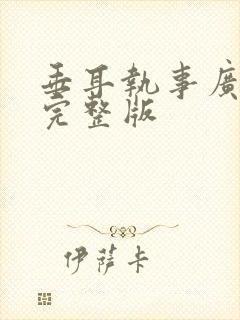 垂耳執事廣
完整版
伊薩卡